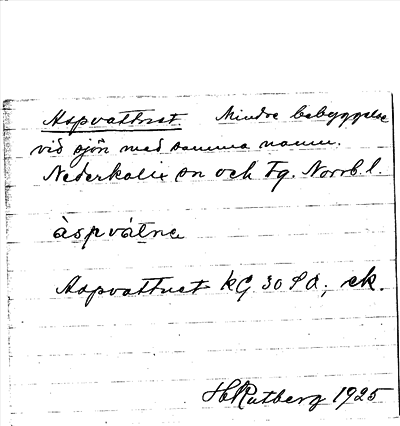 Aspvattnet. Mindre bebyggelse
vid sjön med samma namn.
Nederkalix sn och Tg. Norrb. l.
àspvátnə
Aspvattnet KG 30 Sd; ek.
H Rutberg 1925